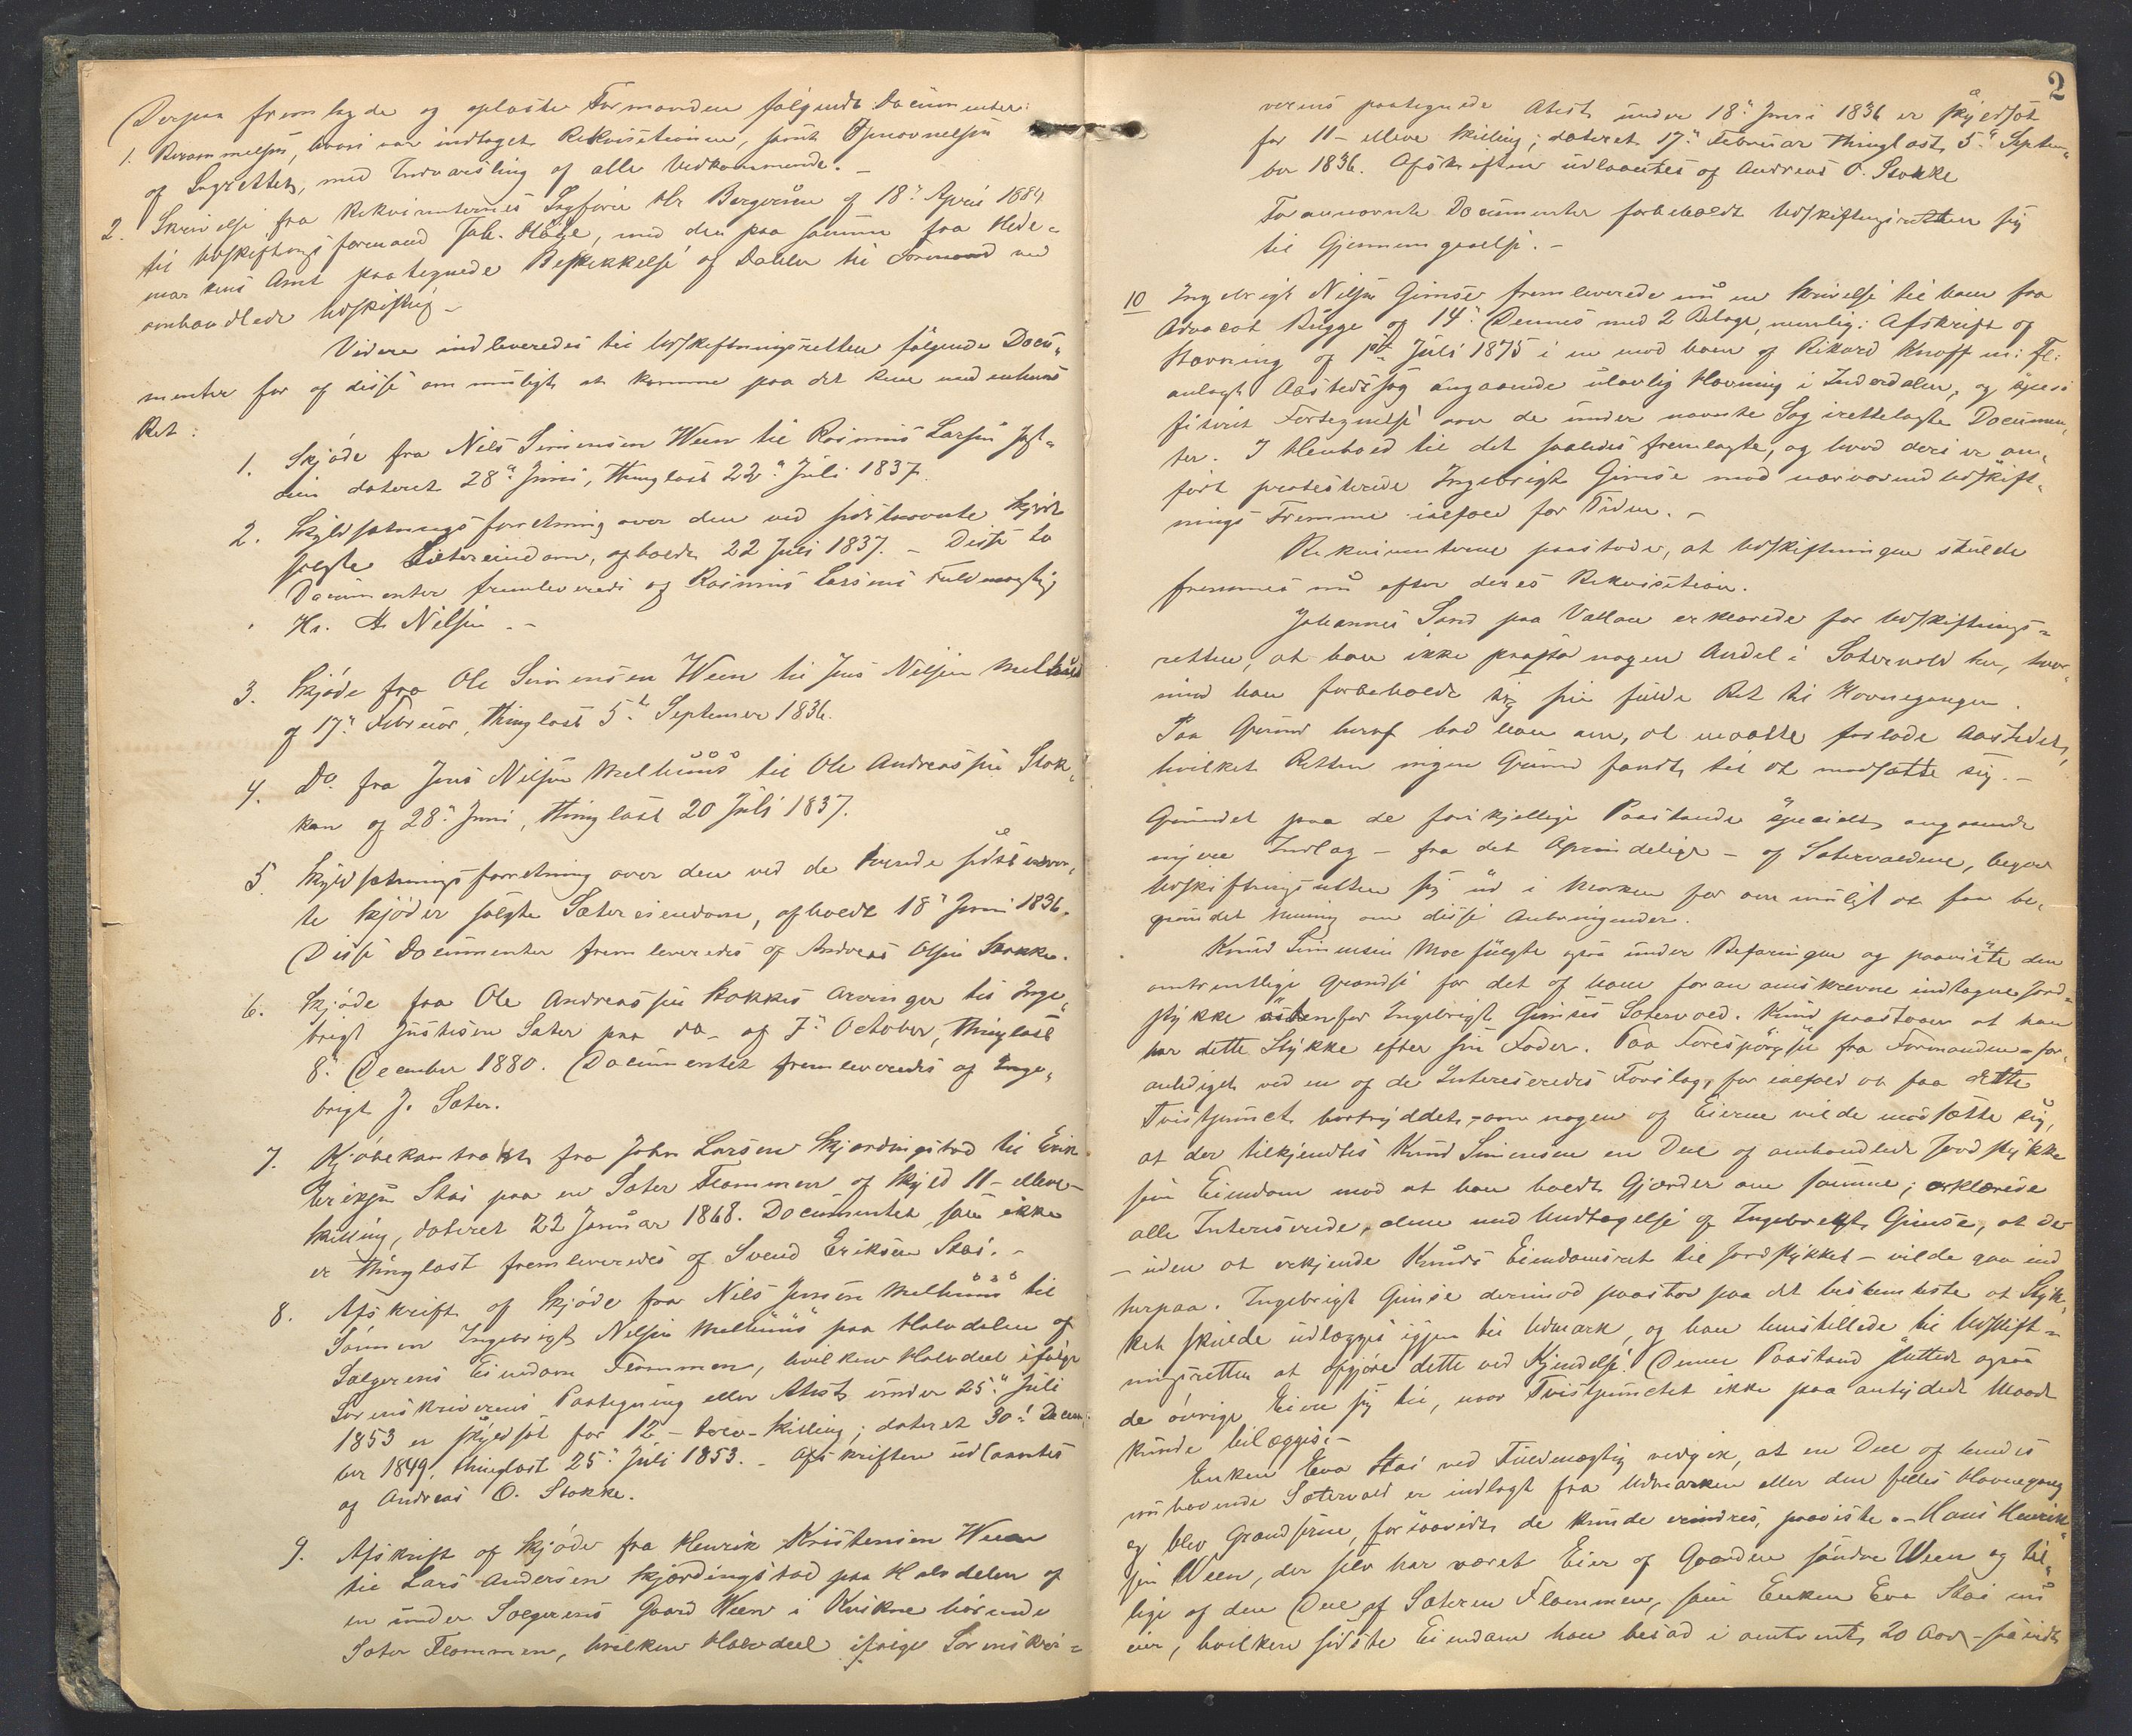 Derpaa fremlagde og oplæste Formanden følgende Documenter:
1. Berammelsen, hvori var indtaget Rekvisitionen, samt Opnævnelsen
af Lagrettet, med Indvarsling af alle Vedkommende. –
2. Skrivelse fra Rekvirenternes Sagfører Hr Bergersen af 18de April 1884
til Udskiftningsformand Joh. Helge, med den paa samme fra Hede-
markens Amt paategnede Beskikkelse af Dahlen til Formand ved
omhandlede Udskiftning –
Videre indleveredes til Udskiftningsretten følgende Docu-
menter for af disse om muligt at komme paa det Rene med enhvers
Ret:
1. Skjøde fra Nils Simensen Ween til Rasmus Larsen
dateret 28de Juni, thinglæst 22de Juli 1837.
2. Skyldsætningsforretning over den ved sidstnævnte Skjøde
solgte Sætereiendom, afholdt 22 Juli 1837. – Disse to
Documenter fremleveredes af Rasmus Larsens Fuldmægtig
Hr. A. Nilsen. –
3. Skjøde fra Ole Simensen Ween til Jens Nilsen Melhuus
af 17de Februar, thinglæst 5te September 1836.
4. Do fra Jens Nilsen Melhuus til Ole Andreassen Stok-
ken af 28de Juni, thinglæst 20 Juli 1837.
5. Skyldsætningsforretning over den ved de tvende sidstnævn-
te Skjøder solgte Sætereiendom, afholdt 18de Juni 1836.
Disse Documenter fremleveredes af Andreas Olsen Stokke.
6. Skjøde fra Ole Andreassen Stokkes Arvinger til Inge-
brigt Justesen Sæter paa do – af 7de October, thinglæst
8de December 1880. Documentet fremleveredes af Inge-
brigt J. Sæter.
7. Kjøbekontrakt fra John Larsen Skjærdingstad til Erik
Eriksen Stai paa en Sæter Flammen af Skyld 11 – elleve –
Skilling, dateret 22 Januar 1868. Documentet, som ikke
er thinglæst fremleveredes af Svend Eriksen Stai. –
8. Afskrift af Skjøde fra Nils Jensen Melhuus til
Sønnen Ingebrigt Nilsen Melhuus paa Halvdelen af
Sælgerens Eiendom Flammen, hvilken Halvdeel ifølge
Sorenskriverens Paategning eller Attest under 25de Juli
1853 er skyldsat for 12 – tolv – Skilling; dateret 30te Decem-
ber 1849, thinglæst 25de Juli 1853. – Afskriften udlaantes
af Andreas O. Stokke.
9. Afskrift af Skjøde fra Henrik Kristensen Ween
til Lars Andersen Skjærdingstad paa Halvdelen af
en under Sælgerens Gaard Ween i Kvikne hørende
Sæter Flammen, hvilken Halvdeel ifølge Sorenskri-
2
verens paategnede Attest under 18de Juni 1836 er skyldsat
for 11 – elleve Skilling; dateret 17de Februar thinglæst 5te Septem-
ber 1836. Afskriften udlaantes af Andreas O. Stokke
Forannævnte Documenter forbeholdt Udskiftningsretten sig
til Gjennemgaaelse. –
10 Ingebrigt Nilsen Gimse fremleverede nu en Skrivelse til ham fra
Advocat Bugge af 14de Dennes med 2 Bilage, nemlig: Afskrift af
Stævning af 1ste Juli 1875 i en mod ham af Rikard Knoff m: Fl:
anlagt Aastedssag angaaende ulovlig Havning i Inderdalen, og speci-
ficeret Fortegnelse over de under nævnte Sag irettelagte Documen-
ter. I Henhold til det saaledes fremlagte, og hvad deri er an-
ført protesterede Ingebrigt Gimse mod nærværende Udskift-
nings Fremme ialfald for Tiden. –
Rekvirenterne paastode, at Udskiftningen skulde
fremmes nu efter deres Rekvisition.
Johannes Sand paa Vallan erklærede for Udskiftnings-
retten, at han ikke paastod nogen Andel i Sætervold her, hvor-
imod han forbeholdt sig sin fulde Ret til Havnegangen.
Paa Grund heraf bad han om, at maatte forlade Aastedet,
hvilket Retten ingen Grund fandt til at modsætte sig. –
Grundet paa de forskjellige Paastande specielt angaaende
nyere Indlæg – fra det Oprindelige – af Sætervoldene, begav
Udskiftningsretten sig ud i Marken for om muligt at faa be-
grundet Mening om disse Anbringender.
Knud Simensen Moe fulgte ogsaa under Befaringen og paaviste den
omtrentlige Grændse for det af ham foran omskrevne indtagne Jord-
stykke østenfor Ingebrigt Gimses Sætervold. Knud paastaar at han
har dette Stykke efter sin Fader. Paa Forespørgsel fra Formanden – for-
anlediget ved en af de Interesseredes Forslag, for ialfald at faa dette
Tvistpunct bortryddet, – om nogen af Eierne vilde modsætte sig,
at der tilkjendtes Knud Simensen en Deel af omhandlede Jordstykke
som Eiendom mod at han holdt Gjærder om samme; erklærede
alle Interesserede, alene med Undtagelse af Ingebrigt Gimse, at de
– uden at erkjende Knuds Eiendomsret til Jordstykket – vilde gaa ind
herpaa. Ingebrigt Gimse derimod paastod paa det bestemteste at Styk-
ket skulde udlægges igjen til Udmark, og han henstillede til Udskift-
ningsretten at afgjøre dette ved Kjendelse. Denne Paastand sluttede ogsaa
de øvrige Eiere sig til, naar Tvistpunctet ikke paa antydede Maade
kunde bilægges. –
Enken Eva Stai ved Fuldmægtig vedgik, at en Deel af hendes
nuhavende Sætervold er indlagt fra Udmarken eller den fælles Havnegang
og blev Grændserne, forsaavidt de kunde erindres, paaviste. – Hans Henrik-
sen Ween, der selv har været Eier af Gaarden søndre Ween og til-
lige af den Deel af Sæteren Flammen, som Enken Eva Stai nu
eier, hvilken sidste Eiendom han besad i omtrent 20 Aar –